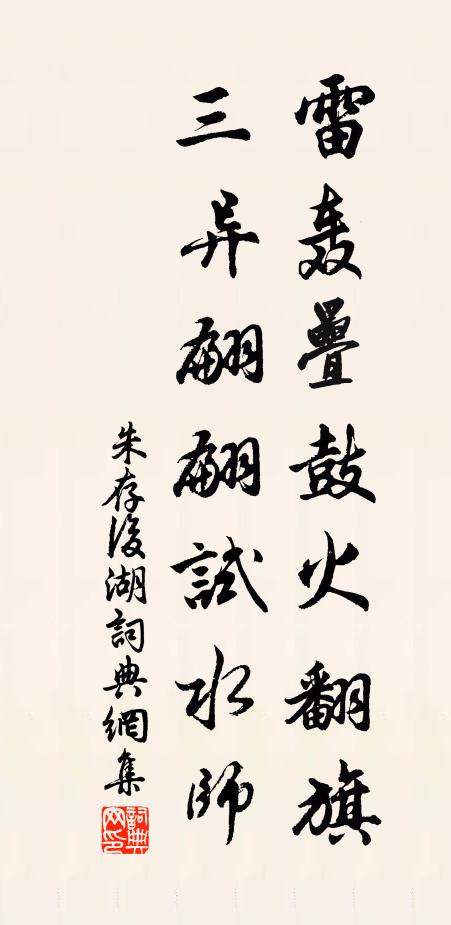 雷轰疊鼓火翻旗
三异翩翩試水師
朱存後湖詞典網集
詞典网印